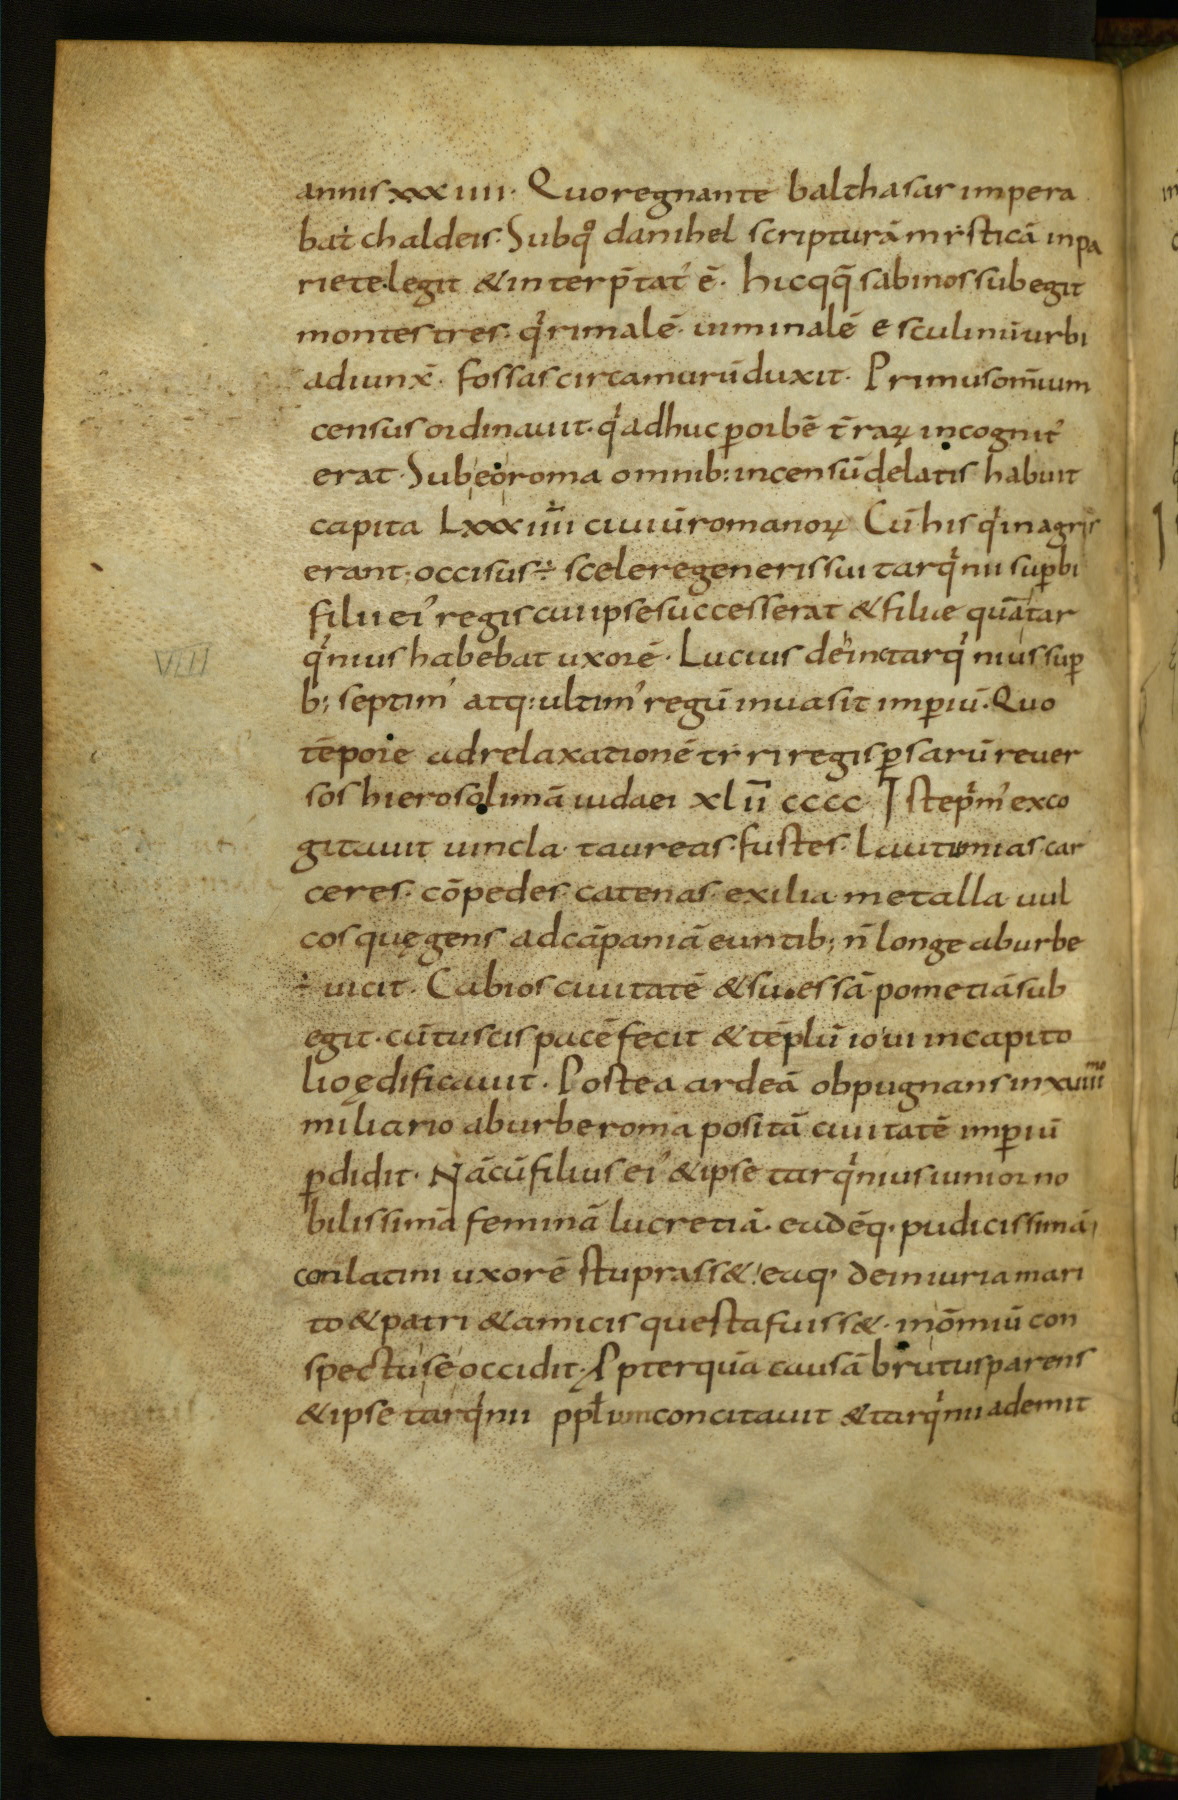 annis xxxiiii. Quo regnante balthasar impera
bat chaldeis. Subqͦ danihel scripturā mẏsticā inpa
riete legit & interp̄tatʼ ē. hicqq̄ sabinos subegit
montes tres. qͥrimalē. uiminalē esculinū urbi
adiunx̄. fossas circa murū duxit. Primus om̄ium
census ordinauit. qͥ adhuc ꝑ orbē t̄raꝝ incognitʼ
erat. Sub eo roma omnib: incensū delatis habuit
capita Lxxxiiii ciuiū romanoꝝ Cū his qͥ in agris
erant; occisus ÷ scelere generis sui tarqͥnii suꝑbi
filii eiʼ regis cui ipse successerat & filiae quā tar
qͥnius habebat uxorē. Lucius deīn tarqͥnius suꝑ
b; septimʼ atq: ultimʼ regū inuasit imꝑiū. Quo
tēpore ad relaxationē cẏri regis ꝑsarū reuer
sos hierosolimā iudaei xlii cccc. Iste pͥmʼ exco
gitauit uincla. taureas. fustes. Lautumias. car
ceres. cōpedes. catenas. exilia. metalla. uul
cos quę gens ad cāpaniā euntib; n̄ longe aburbe
÷ uicit. Cabios ciuitatē & suessā pometiā sub
egit. cū tuscis pacē fecit & tēplū ioui incapito
lio ędificauit. Postea ardeā obpugnans in xuiiiiᵐᵒ
miliario aburbe roma positā ciuitatē imꝑiū
ꝑdidit. Nā cū filius eiʼ & ipse tarqͥnius iunior no
bilissimā feminā lucretiā. eadēq. pudicissimā
conlatini uxorē stuprass&. eaq. deiniuria mari
to & patri & amicis questa fuiss&. in ōmiū con
spectu se occidit. Ꝓpter quā causā brutus parens
& ipse tarqͥnii ppl̄um concitauit & tarqͥnii ademit
VIII